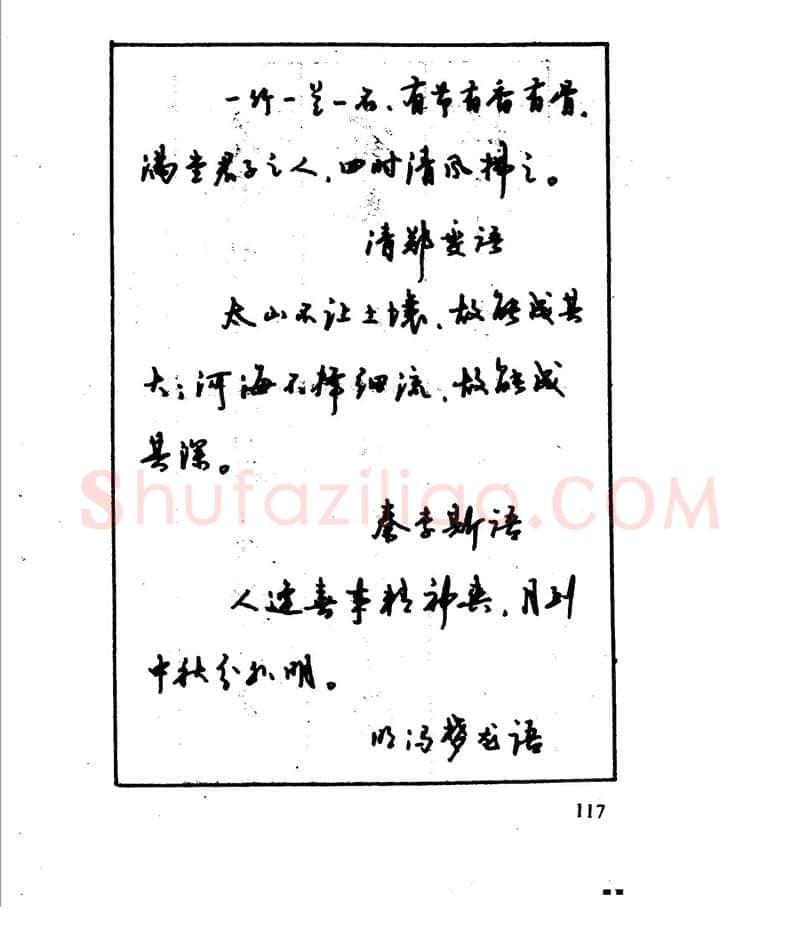 一竹一兰一石,有节有香有骨,
满堂君子之人,四时清风拂之。
清郑燮语
太山不让土壤,故能成其
大;河海不择细流,故能成
其深。
Shufaziliao.COM
秦李斯语
人逢喜事精神爽,月到
中秋分外明。
明冯梦龙语
117